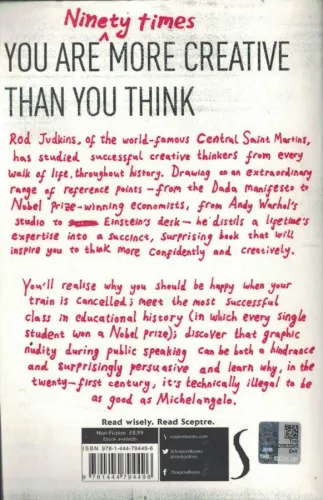 Ninety times
YOU ARE MORE CREATIVE
THAN YOU THINK
Rod Judkins, of the world-famous Central Saint Martins,
has studied successful creative thinkers from every
walk of life, throughout history. Drawing on an extraordinary
range of reference points – from the Dada manifesto to
Nobel Prize-winning economists, from Andy Warhol's
studio to Einstein's desk – he distils a lifetime's
expertise into a succinct, surprising book that will
inspire you to think more confidently and creatively.
You'll realise why you should be happy when your
train is cancelled; meet the most successful
class in educational history (in which every single
student won a Nobel prize); discover that graphic
nudity during public speaking can be both a hindrance
and surprisingly persuasive and learn why, in the
twenty-first century, it's technically illegal to be
as good as Michelangelo.
Read wisely. Read Sceptre.
Non-Fiction £8.99
Ebook available
ISBN 978-1-444-79449-6
9 781444 794496
S